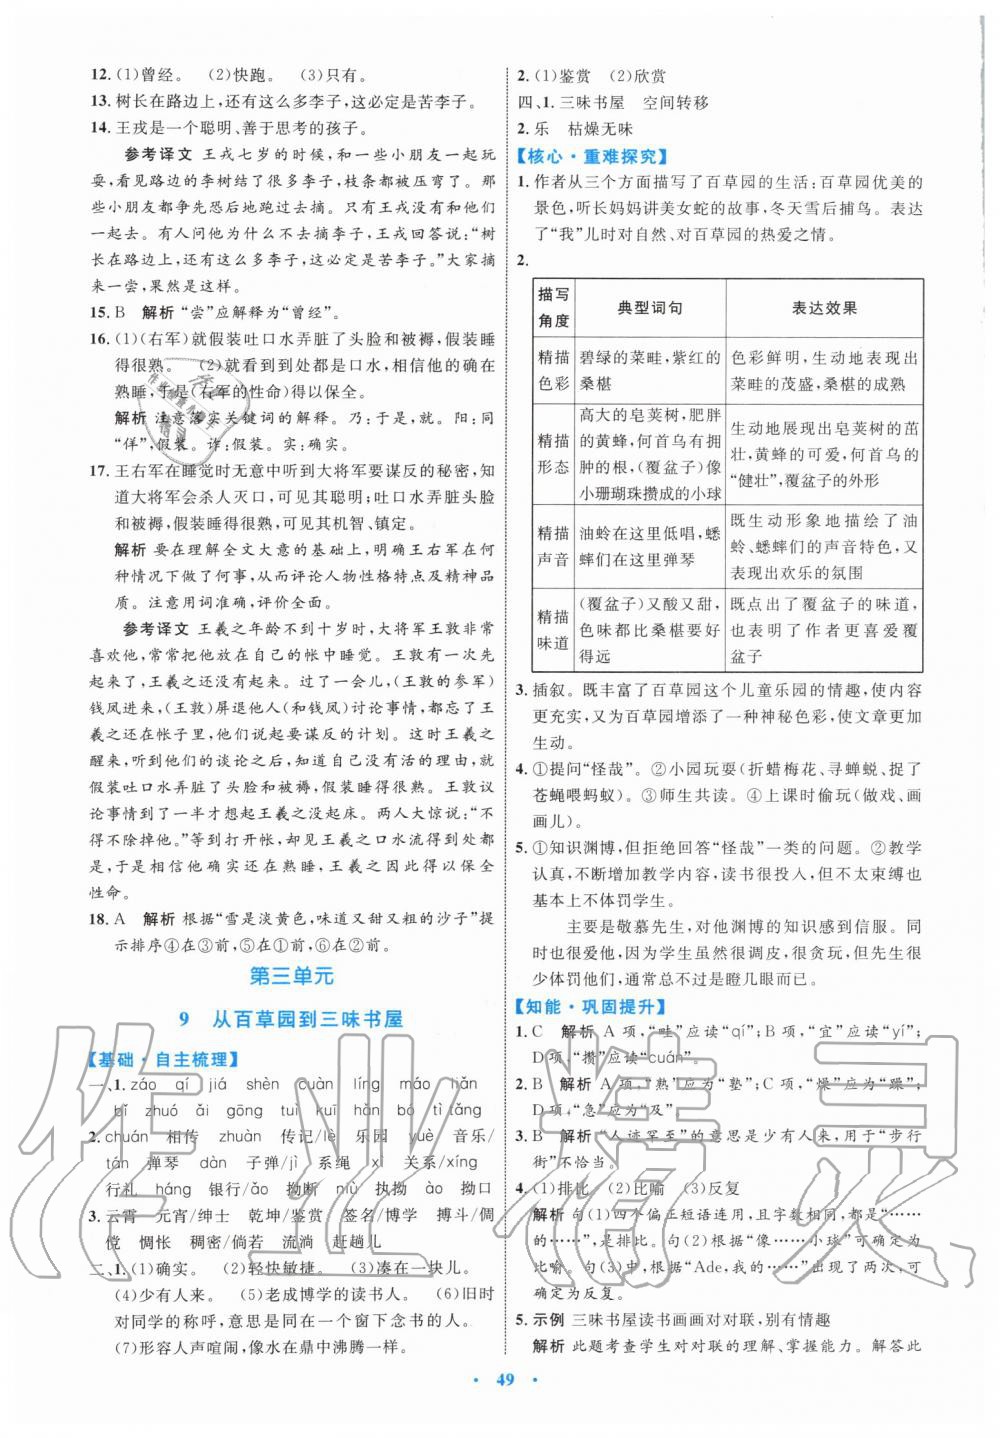 12. (1)曾经。 (2)快跑。 (3)只有。
13. 树长在路边上,还有这么多李子,这必定是苦李子。
14. 王戎是一个聪明、善于思考的孩子。
参考译文 王戎七岁的时候,和一些小朋友一起玩
耍,看见路边的李树结了很多李子,枝条都被压弯了。那
些小朋友都争先恐后地跑过去摘。只有王戎没有和他们
一起去。有人问他为什么不去摘李子,王戎回答说:“树
长在路边上,还有这么多李子,这必定是苦李子。”大家摘
来一尝,果然是这样。
15. B 解析 “尝”应解释为“曾经”。
16. (1)(右军)就假装吐口水弄脏了头脸和被褥,假装睡
得很熟。 (2)就看到到处都是口水,相信他的确在
熟睡,于是(右军的性命)得以保全。
解析 注意落实关键词的解释。乃:于是,就。阳:同
“佯”,假装。诈:假装。实:确实。
17. 王右军在睡觉时无意中听到大将军要谋反的秘密,知
道大将军会杀人灭口,可见其聪明;吐口水弄脏头脸
和被褥,假装睡得很熟,可见其机智、镇定。
解析 要在理解全文大意的基础上,明确王右军在何
种情况下做了何事,从而评论人物性格特点及精神品
质。注意用词准确,评价全面。
参考译文 王羲之年龄不到十岁时,大将军王敦非常
喜欢他,常常把他放在自己的帐中睡觉。王敦有一次先
起来了,王羲之还没有起来。过了一会儿,(王敦的参军)
钱凤进来,(王敦)屏退他人(和钱凤)讨论事情,都忘了王
羲之还在帐子里,他们便说起要谋反的计划。这时王羲之
醒来,听到他们的谈论之后,知道自己没有活的理由,就
假装吐口水弄脏了头脸和被褥,假装睡得很熟。王敦议
论事情到了一半才想起王羲之,两人大惊说:“这时不得
不除掉他了。”等到打开帐,见王羲之口水流得到处都
是,于是相信他确实还在熟睡,王羲之因此得以保全
性命。
18. A 解析 根据“雪是淡黄色,味道又甜又粗的沙子”提
示排序④在③前,⑤在①前,⑥在②前。
第三单元
9 从百草园到三味书屋
【基础·自主梳理】
一、1. záo qí jiá shèn cuàn líng máo hǎn
bǐ zhuó ǎi gōng tuì kuī dǐng bó tì tǎng
2. chuán 相传 zhuàn 传记/lè 乐园 yuè 音乐/
tán 弹琴 dàn 子弹/jì 系绳 xì 关系/xíng
行礼 háng 银行/ǎo 拗断 niù 执拗 ào 拗口
3. 云霄 元宵/绅士 乾坤/鉴赏 签名/博学 搏斗/倜
傥 惆怅 稠密/倘若 流淌 赶趟儿
二、1. (1)确实。 (2)轻快敏捷。 (3)凑在一块儿。
(4)少有人来。 (5)老成博学的读书人。 (6)旧时
对同学的称呼,意思是在一个窗下念书的人。
(7)形容人声喧闹,像水在鼎中沸腾一样。
2. (1)鉴赏 (2)欣赏
四、1. 三味书屋 空间转移
2. 乐 枯燥无味
【核心·重难探究】
1. 作者从三个方面描写了百草园的生活:百草园优美的
景色,听长妈妈讲美女蛇的故事,冬天雪后捕鸟。表达
了“我”儿时对自然、对百草园的热爱之情。
2.
描写角度 典型词句 表达效果
精描 碧绿的菜畦,紫红的 色彩鲜明,生动地表现出
色彩 桑椹 菜畦的茂盛,桑椹的成熟
精描形态
高大的皂荚树,肥胖
的黄蜂,何首乌有拥
肿的根,(覆盆子)像
小珊瑚珠攒成的小球
生动地展现出皂荚树的茁
壮,黄蜂的可爱,何首乌的
“健壮”,覆盆子的外形
精描声音
油蛉在这里低唱,蟋
蟀们在这里弹琴
既生动形象地描绘了油
蛉、蟋蟀们的声音特色,又
表现出欢乐的氛围
精描味道
(覆盆子)又酸又甜,
色味都比桑椹要好
得远
既点出了覆盆子的味道,
也表明了作者更喜爱覆
盆子
3. 插叙。既丰富了百草园这个儿童乐园的情趣,使内容
更充实,又为百草园增添了一种神秘色彩,使文章更加
生动。
4. ①提问“怪哉”。②小园玩耍(折蜡梅花、寻蝉蜕、捉了
苍蝇喂蚂蚁)。③师生共读。④上课时偷玩(做戏、画
画儿)。
5. ①知识渊博,但拒绝回答“怪哉”一类的问题。②教学
认真,不断增加教学内容,读书很投入,但不太束缚也
基本上不体罚学生。
主要是敬慕先生,对他渊博的知识感到信服。同
时也很爱他,因为学生虽然很调皮,很贪玩,但先生很
少体罚他们,通常总不过是瞪几眼而已。
【知能·巩固提升】
1. C 解析 A项,“畦”应读“qí”;B项,“宜”应读“yí”;
D项,“攒”应读“cuán”。
2. B 解析 A项,“熟”应为“塾”;C项,“燥”应为“躁”;
D项,“急”应为“及”。
3. B 解析 “人迹罕至”的意思是少有人来,用于“步行
街”不恰当。
4. (1)排比 (2)比喻 (3)反复
解析 句(1)四个偏正短语连用,且字数相同,都是“……
的……”,是排比。句(2)中,根据“像……小球”可确定为
比喻。句(3)中,根据“Ade,我的……”出现了两次,可
确定为反复。
5. 示例 三味书屋读书画画对对联,别有情趣
解析 此题考查学生对对联的理解、掌握能力。解答此
49
作业精灵